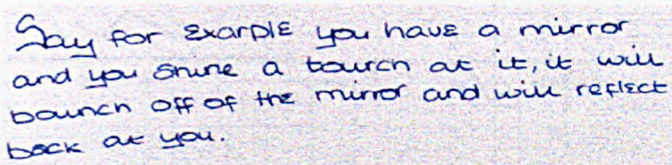 Say for exarple you have a mirror
and you shine a tourch at it, it will
bounch off of the mirror and will reflect
back at you.